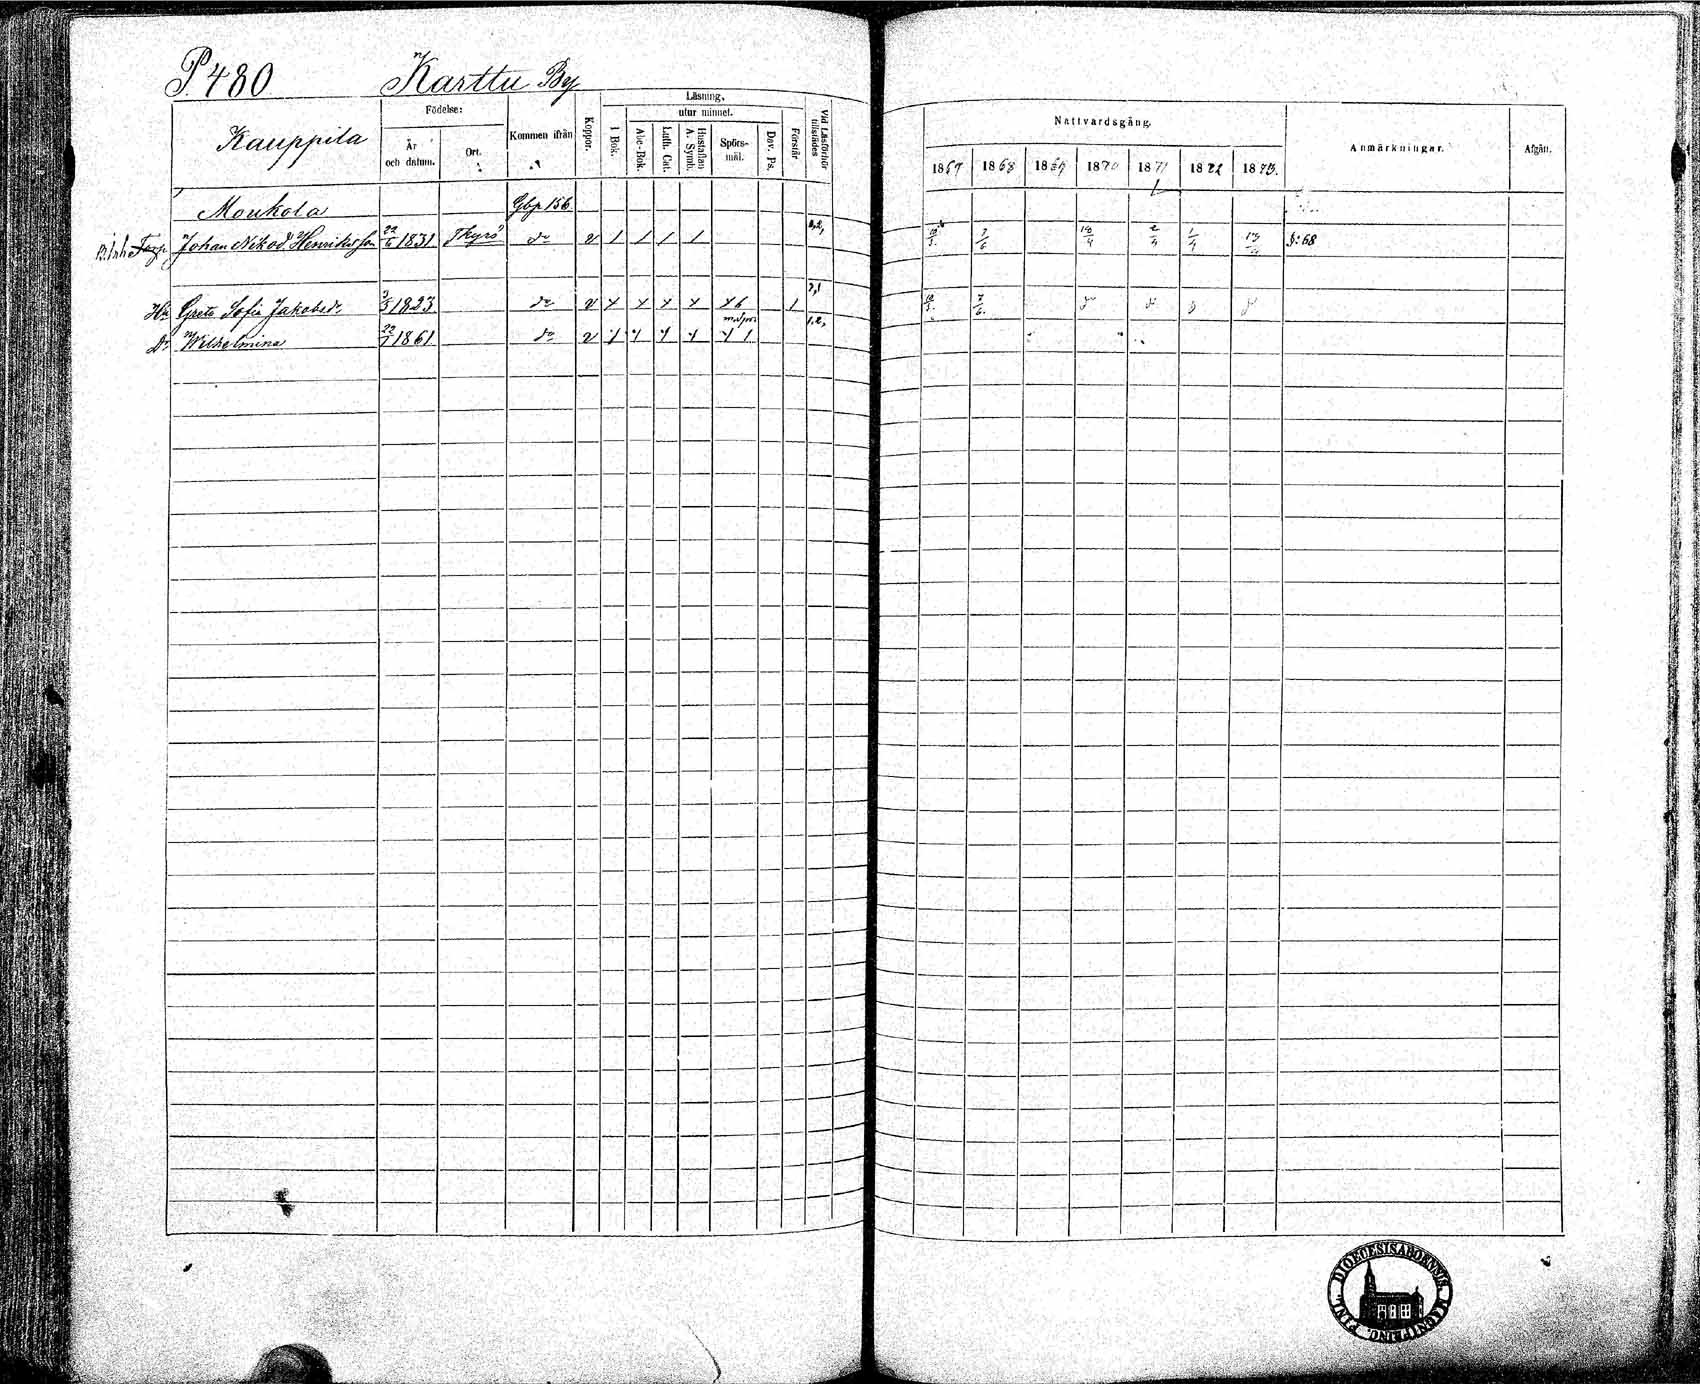 P. 480 Karttu By
Kauppila
Födelse:
År och datum.
Ort.
Kommen ifrån
Koppor.
Läsning,
I Bok.
utur minnet.
Abc-Bok.
Luth. Cat.
Hustaflan A. Symb.
Spörs-mål.
Dav. Ps.
Förstår
Vid Läsförhör tillstädes
Moukola Gbp 156
Johan Nikod. Henriksson 22/5 1831 Thyrö do v / / / / /
Hu Greta Sofia Jakobsdr 3/3 1823 do v x x x x x 6 1 2,1
Dr Wilhelmina 22/7 1861 do v 1,2,
Nattvardsgång.
1867 1868 1869 1870 1871 1872 1873.
Anmärkningar.
Afgån.
10/3 7/6 18/4 2/4 1/4 §: 68
10/3 7/6
DIOECESIS ABOENSIS. MAGNI PRINC. FINL.